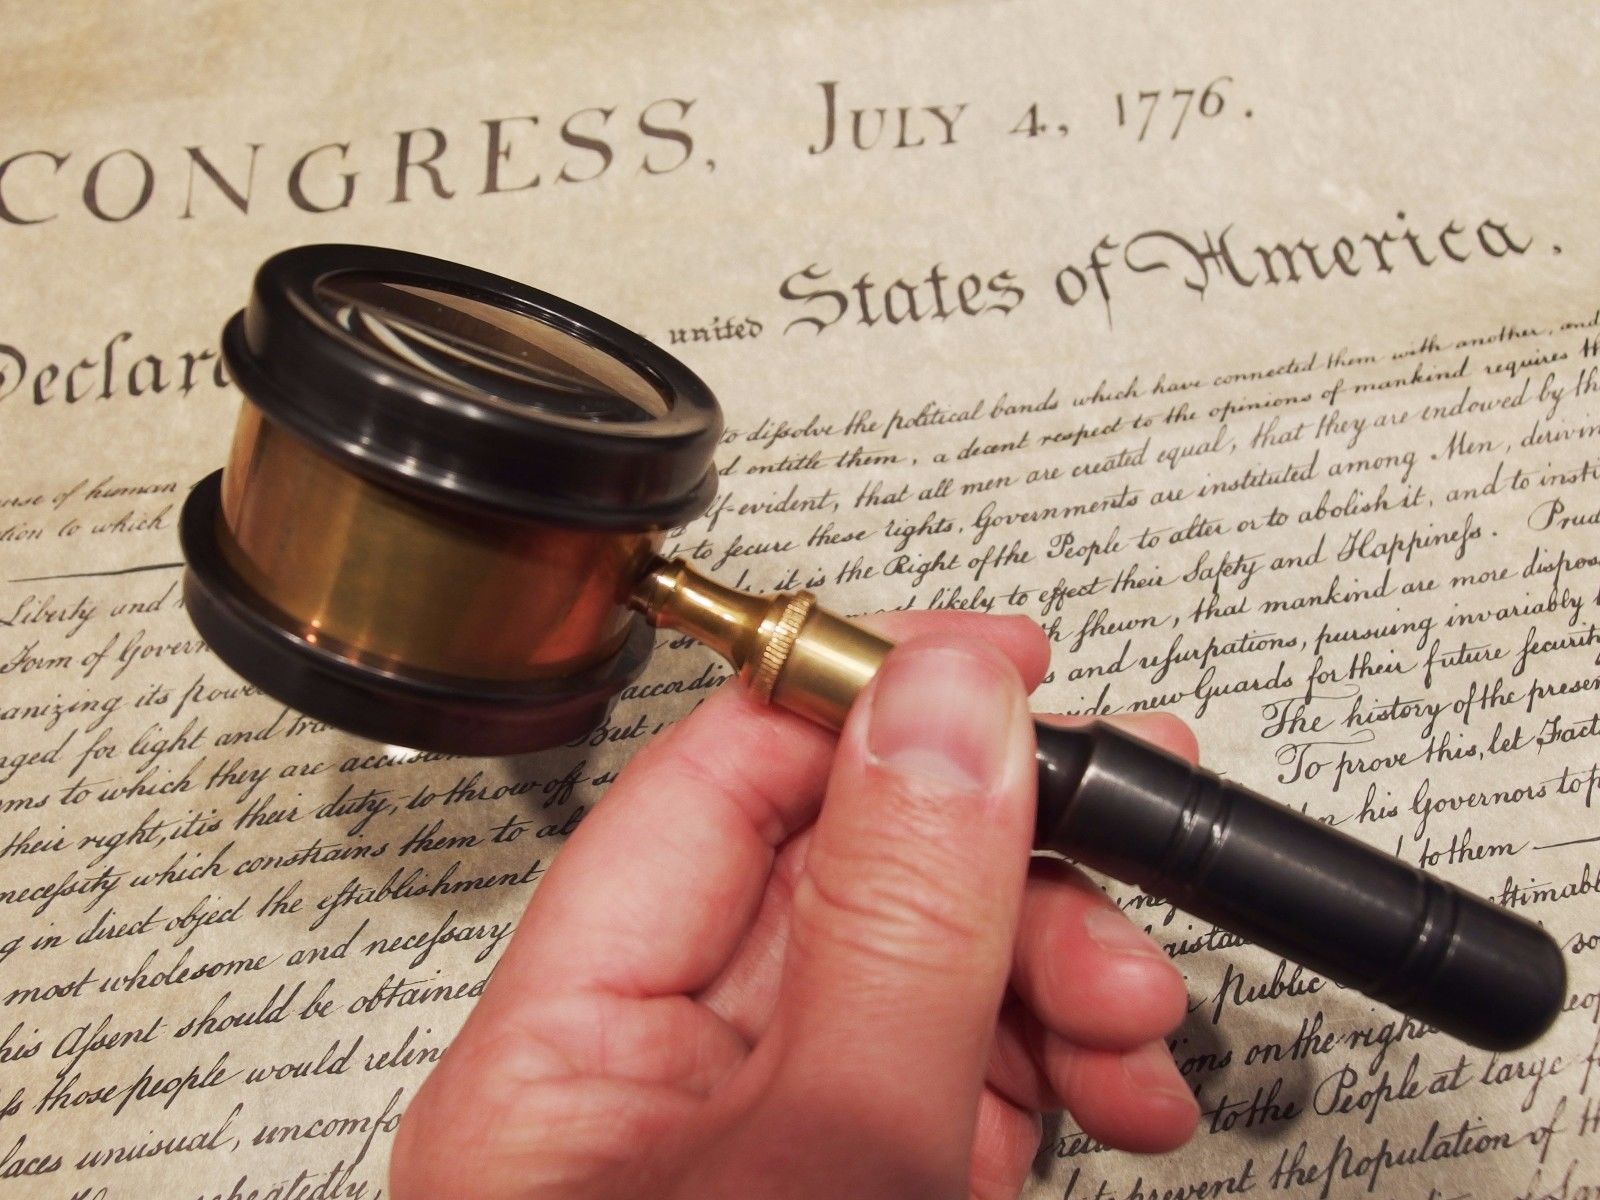 CONGRESS, JULY 4, 1776.
united States of America.
to dissolve the political bands which have connected them with another, and
urse of human
entitle them, a decent respect to the opinions of mankind requires
tion to which
lf-evident, that all men are created equal, that they are endowed by
to secure these rights, Governments are instituted among Men,
it is the Right of the People to alter or to abolish it, and to
Liberty and
likely to effect their Safety and Happiness.
Form of
shewn, that mankind are more
its
and usurpations, pursuing invariably
for light and
according
new Guards for their future
to which they are
But
The history of the
their right, it is their duty, to throw off
To prove this, let
necessity which constrains them to
his Governors to
in direct object the establishment
to them
most wholesome and necessary
his Assent should be obtained
Public
those people would
on the
unusual,
to the People at large
repeatedly,
prevent the Population of